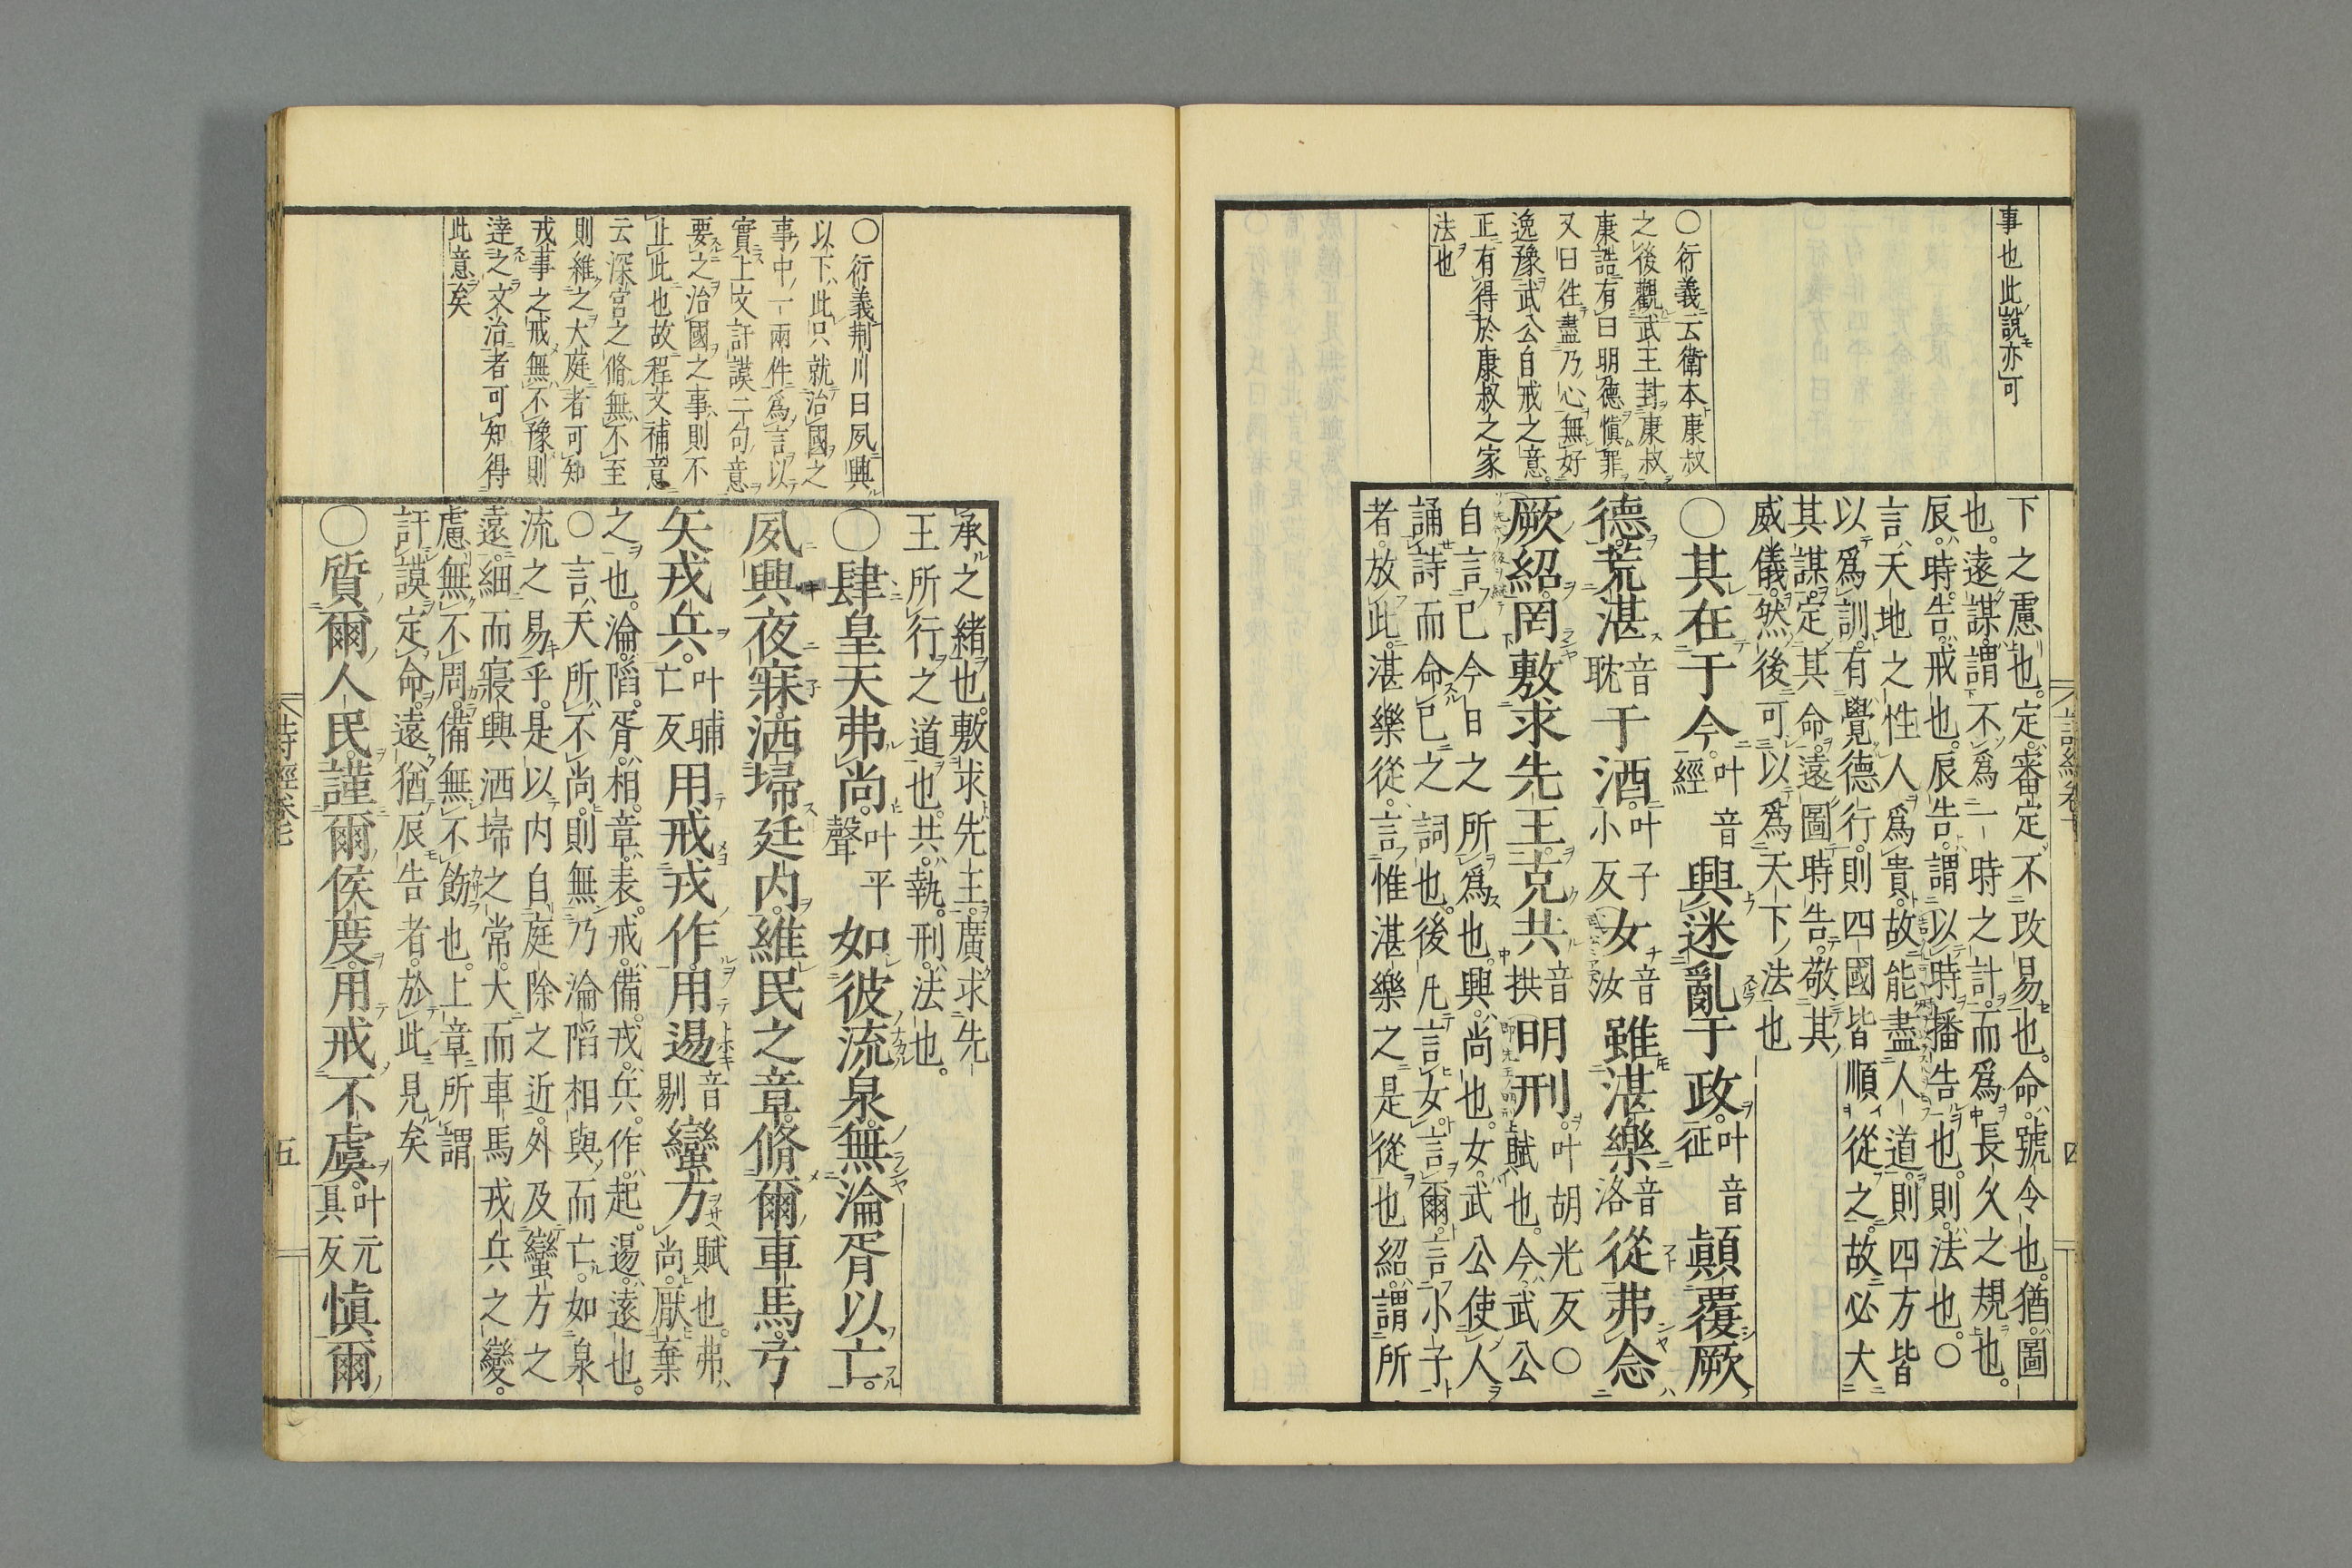 事也此說亦可
○衍義云衛本康叔
之後觀武王封康叔
康誥有曰明德愼罪
又曰往盡乃心無好
逸豫武公自戒之意
正有得於康叔之家
法也
下之慮也。定審定不改易也。命號令也。猶圖
也。遠謀謂不爲一時之計而爲長久之規也。
辰時告戒也。辰告謂以時播告也。則法也。○
言天地之性人爲貴。故能盡人道則四方皆
以爲訓。有覺德行。則四國皆順從之。故必大
其謀。定其命。遠圖時告。敬其
威儀。然後可以爲天下法也
○其在于今。叶音經興迷亂于政。叶音征顛覆厥
德。荒湛音耽于酒。叶子小反女音汝雖湛樂音洛從弗念
厥紹。罔敷求先王。克共音拱明刑。叶胡光反○賦也。今武公
自言已今日之所爲也。興尚也。女武公使人
誦詩而命已之詞也。後凡言女。言爾。言小子
者。放此。湛樂從。言惟湛樂之是從也紹。謂所
詩經卷七
四
○衍義荆川曰夙興
以下此只就治國之
事中一兩件爲言以
實上文訏謨二句意
要之治國之事則不
止此也故程艾補意
云深宮之脩無不至
則維之大庭者可知
戎事之戒無不豫則
達之文治者可知得
此意矣
承之緒也。敷求先王。廣求先
王所行之道也。共。執。刑。法也。
○肆皇天弗尚。叶平聲如彼流泉。無淪胥以亡。
夙興夜寐。洒埽廷内。維民之章。脩爾車馬。弓
矢戎兵。叶晡亡反用戒戎作。用逷音剔蠻方賦也。弗尚。厭棄
之也。淪。陷。胥。相。章。表。戒。備。戎。兵。作。起。逷。遠也。
○言天所不尚。則無乃淪陷相與而亡。如泉
流之易乎。是以内自庭除之近。外及蠻方之
遠。細而寢興洒埽之常。大而車馬戎兵之變。
慮無不周。備無不飭也。上章所謂
訏謨定命。遠猶辰告者。於此見矣
○質爾人民。謹爾侯度。用戒不虞。叶元具反愼爾
詩經卷七
五